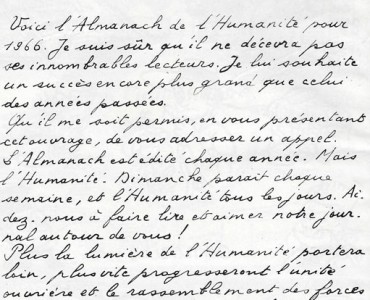 Voici l'Almanach de l'Humanité pour
1966. Je suis sûr qu'il ne décevra pas
ses innombrables lecteurs. Je lui souhaite
un succès encore plus grand que celui
des années passées.
Qu'il me soit permis, en vous présentant
cet ouvrage, de vous adresser un appel.
L'Almanach est édité chaque année. Mais
l'Humanité. Dimanche paraît chaque
semaine, et l'Humanité tous les jours. Ai.
dez. nous à faire lire et aimer notre jour.
nal autour de vous !
Plus la lumière de l'Humanité portera
loin, plus vite progresseront l'unité
ouvrière et le rassemblement des forces